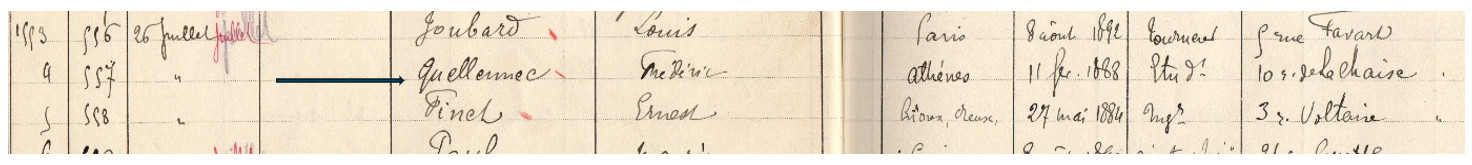 1553 556 26 Juillet juillet Joubard Louis Paris 8 août 1892 Tourneur 5 rue Favart
4 557 " Quellennec Frédéric athénes 11 fev. 1888 Etudt 10 r. de la chaise .
5 558 " Finet Ernest 27 mai 1884 Ingr 3 r. Voltaire "
Paul